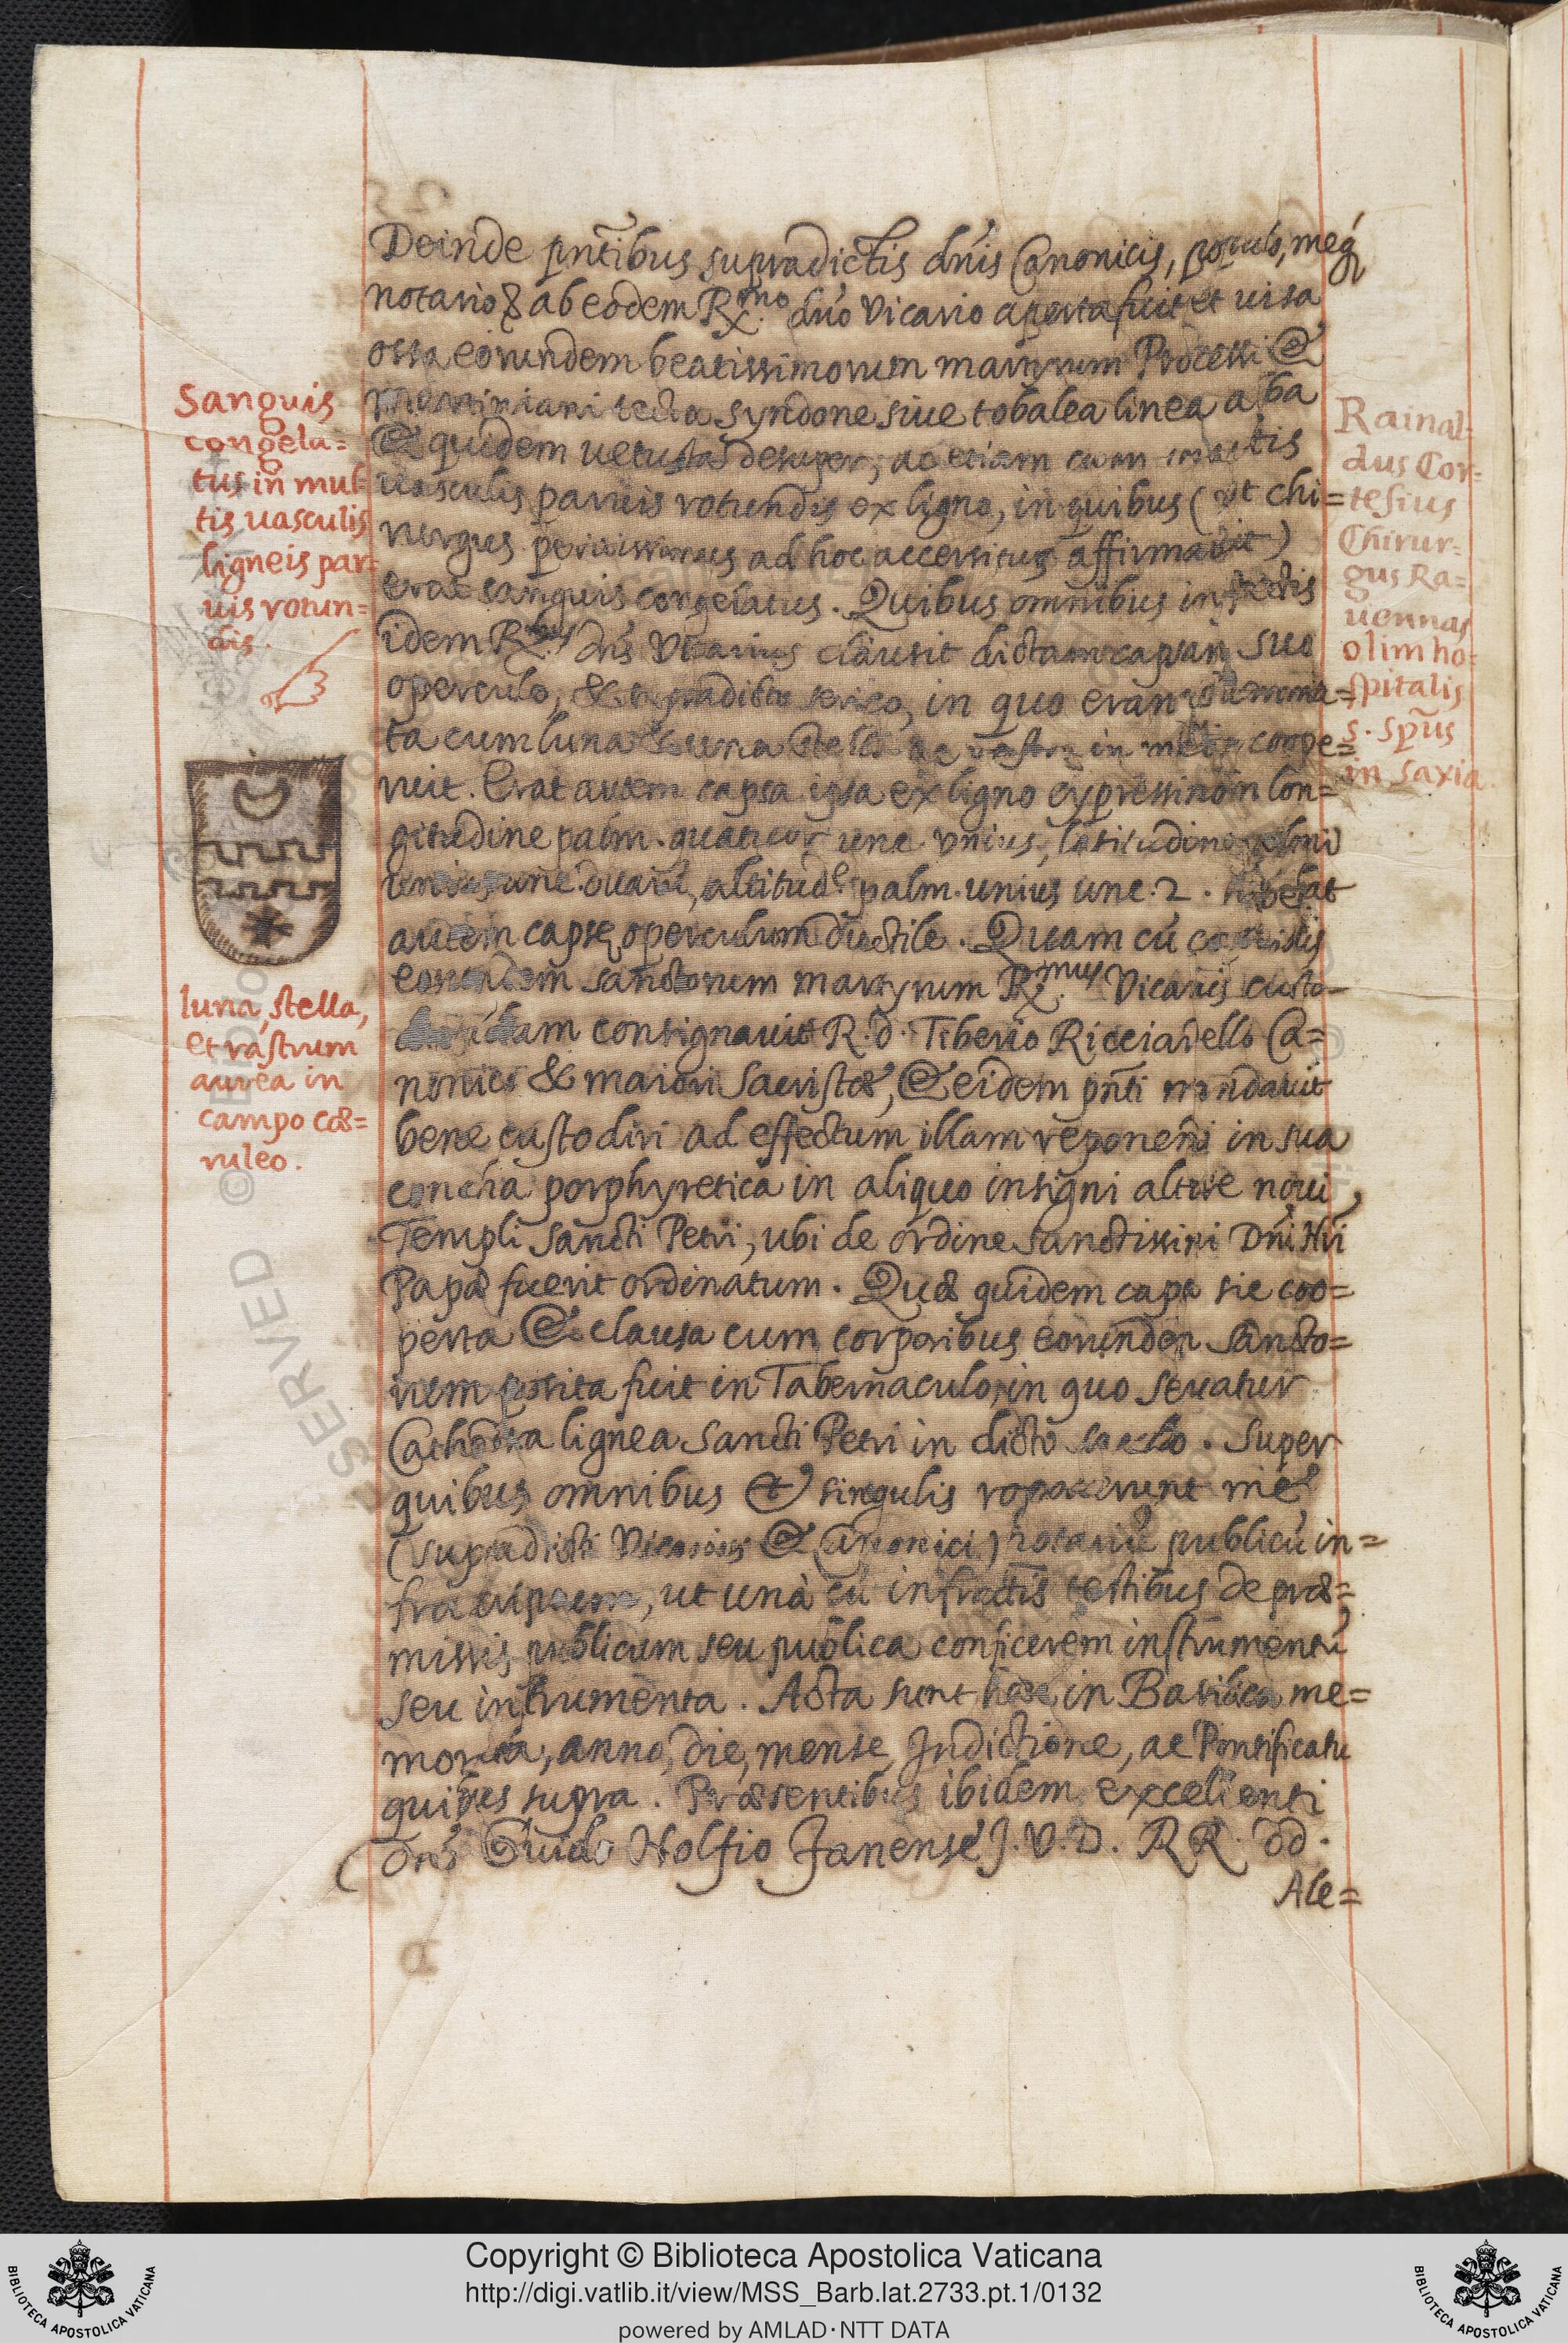 Deinde pñtibus supradictis dńis Canonicis, populo, meq́
notario & ab eodem R.mo dńo Vicario aperta fuit et uisa
ossa eorundem beatissimorum martyrum Processi &
Martiniani tecta syndone siue tobalea linea alba
& quidem uetusta desuper, ac etiam cum multis
uasculis paruis rotundis ex ligno, in quibus (ut chi=
rurgus peritissimus ad hoc accersitus affirmauit)
erat sanguis congelatus. Quibus omnibus inspectis
idem R.mus dńs Vicarius clausit dictam capsam suo
operculo, & supradicto serico, in quo erant
ta cum luna & una stella ac rastro in medio coope=
ruit. Erat autem capsa ipsa ex ligno cypressino in lon=
gitudine palm. quatuor unc. unius, latitudine palmi
unius unc. duarũ, altitudẽ palm. unius unc. 2. habebat
autem capsę operculum ductile. Quam cũ corporibus
eorundem sanctorum martyrum R.mus Vicarius custo-
diendam consignauit R. d. Tiberio Ricciardello Ca=
nonico & maiori Sacristæ, & eidem pñti mandauit
bene custodiri ad effectum illam reponendi in sua
concha porphyretica in aliquo insigni altare noui
Templi Sancti Petri, ubi de ordine sanctissimi Dñi Nři
Papæ fuerit ordinatum. Quæ quidem capsa sic coo=
perta & clausa cum corporibus eorundem Sancto=
rum posita fuit in Tabernaculo, in quo seruatur
Cathedra lignea Sancti Petri in dicto sacello. Super
quibus omnibus & singulis rogauerunt me
(supradicti Vicarius & Canonici) notariũ publicũ in=
frascriptum, ut unà cũ infrãctis testibus de præ=
missis publicum seu publica conficerem instrumentũ
seu instrumenta. Acta sunt hæc in Basilica me=
morata, anno, die, mense, Indictione, ac Pontificatu
quibus supra. Præsentibus ibidem excellenti
dño Guido Nolfio Fanense J.V.D. RR. dd.
Ale=
Sanguis
congela=
tus in mul=
tis uasculis
ligneis par=
uis rotun=
dis.
luna, stella,
et rastrum
aurea in
campo cæ=
ruleo.
Rainal=
dus Cor=
tesius
Chirur=
gus Ra=
uennas
olim ho=
spitalis
S. Spũs
in Saxia.
Copyright © Biblioteca Apostolica Vaticana
http://digi.vatlib.it/view/MSS_Barb.lat.2733.pt.1/0132
powered by AMLAD·NTT DATA
BIBLIOTECA APOSTOLICA VATICANA
BIBLIOTECA APOSTOLICA VATICANA